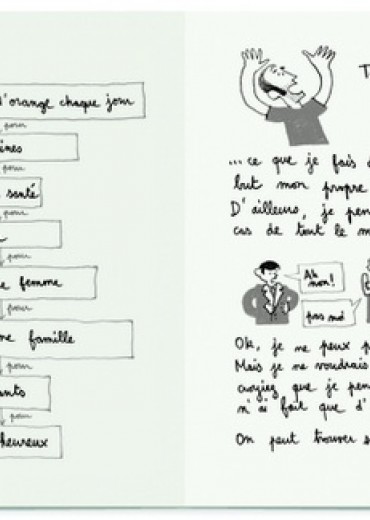 d'orange chaque jour
pour
ines
pour
santé
pour
pour
e femme
pour
ne famille
pour
ants
pour
heureux
T
... ce que je fais d
but mon propre
D'ailleurs, je pen
cas de tout le m
Ah
non!
pas moi
Ok, je ne peux p
Mais je ne voudrais
croyiez que je pen
n'ai fait que d'
On peut trouver s